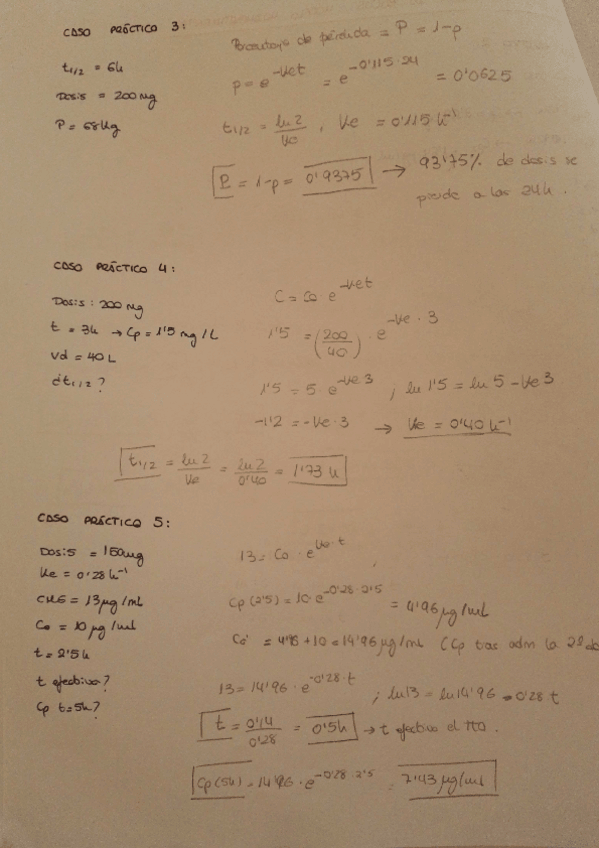 CASO PRÁCTICO 3:
Porcentaje de pérdida = P = 1-p
t1/2 = 6h
p = e^-Ket = e^-0'115·24 = 0'0625
Dosis = 200 mg
t1/2 = ln 2/Ke , Ke = 0'115 h^-1
P = 68Kg
P = 1-p = 0'9375 → 93'75% de dosis se
pierde a las 24h.
CASO PRÁCTICO 4:
C = Co · e^-Ket
Dosis: 200 mg
t = 3h → Cp = 1'5 mg/L
1'5 = (200/40) · e^-Ke · 3
Vd = 40 L
¿t1/2?
1'5 = 5 e^-Ke3 ; ln 1'5 = ln 5 - Ke 3
-1'2 = -Ke · 3 → Ke = 0'40 h^-1
t1/2 = ln 2/Ke = ln 2/0'40 = 1'73 h
CASO PRÁCTICO 5:
Dosis = 150mg
13 = Co · e^Ke·t
Ke = 0'28 h^-1
CME = 13 µg/mL
Cp (2'5) = 10 · e^-0'28·2'5 = 4'96 µg/mL
Co = 10 µg/mL
Co' = 4'96 + 10 = 14'96 µg/mL (Cp tras adm la 2ª
t = 2'5h
t efectivo?
13 = 14'96 · e^-0'28·t ; ln 13 = ln 14'96 - 0'28 t
Cp t=5h?
t = 0'14/0'28 = 0'5h → t efectivo el tto.
Cp(5h) = 14'96 · e^-0'28·2'5 = 7'43 µg/mL